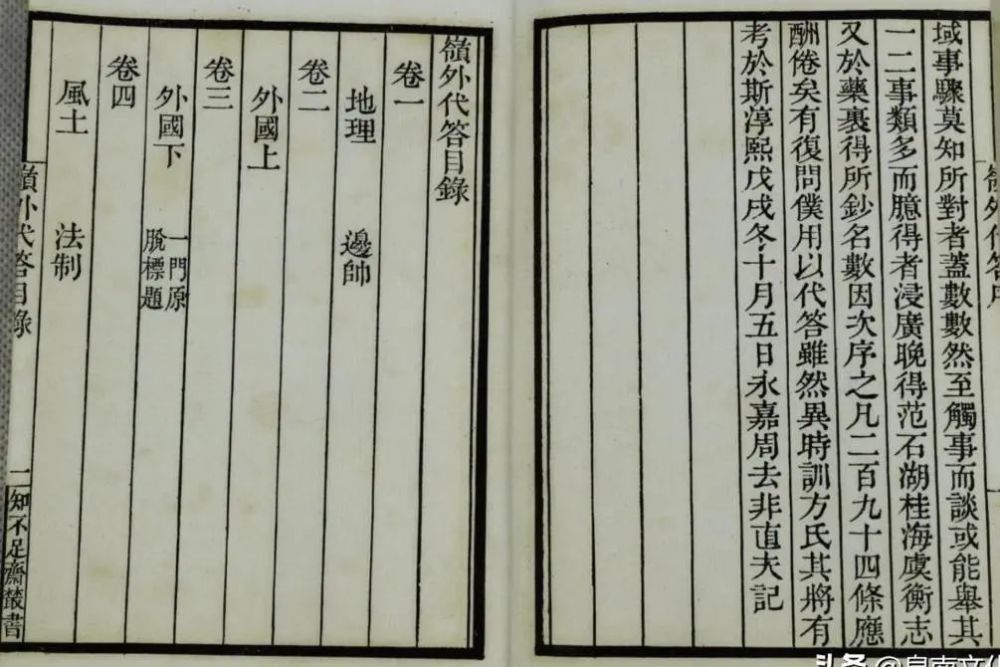 域事驟莫知所對者蓋數數然至觸事而談或能舉其
一二事類多而臆得者浸廣晚得范石湖桂海虞衡志
又於藥裹得所鈔名數因次序之凡二百九十四條應
酬倦矣有復問僕用以代答雖然異時訓方氏其將有
考於斯淳熙戊戌冬十月五日永嘉周去非直夫記
嶺外代答目錄
卷一
地理 邊帥
卷二
外國上
卷三
外國下 一門原脫標題
卷四
風土 法制
嶺外代答目錄 一 知不足齋叢書